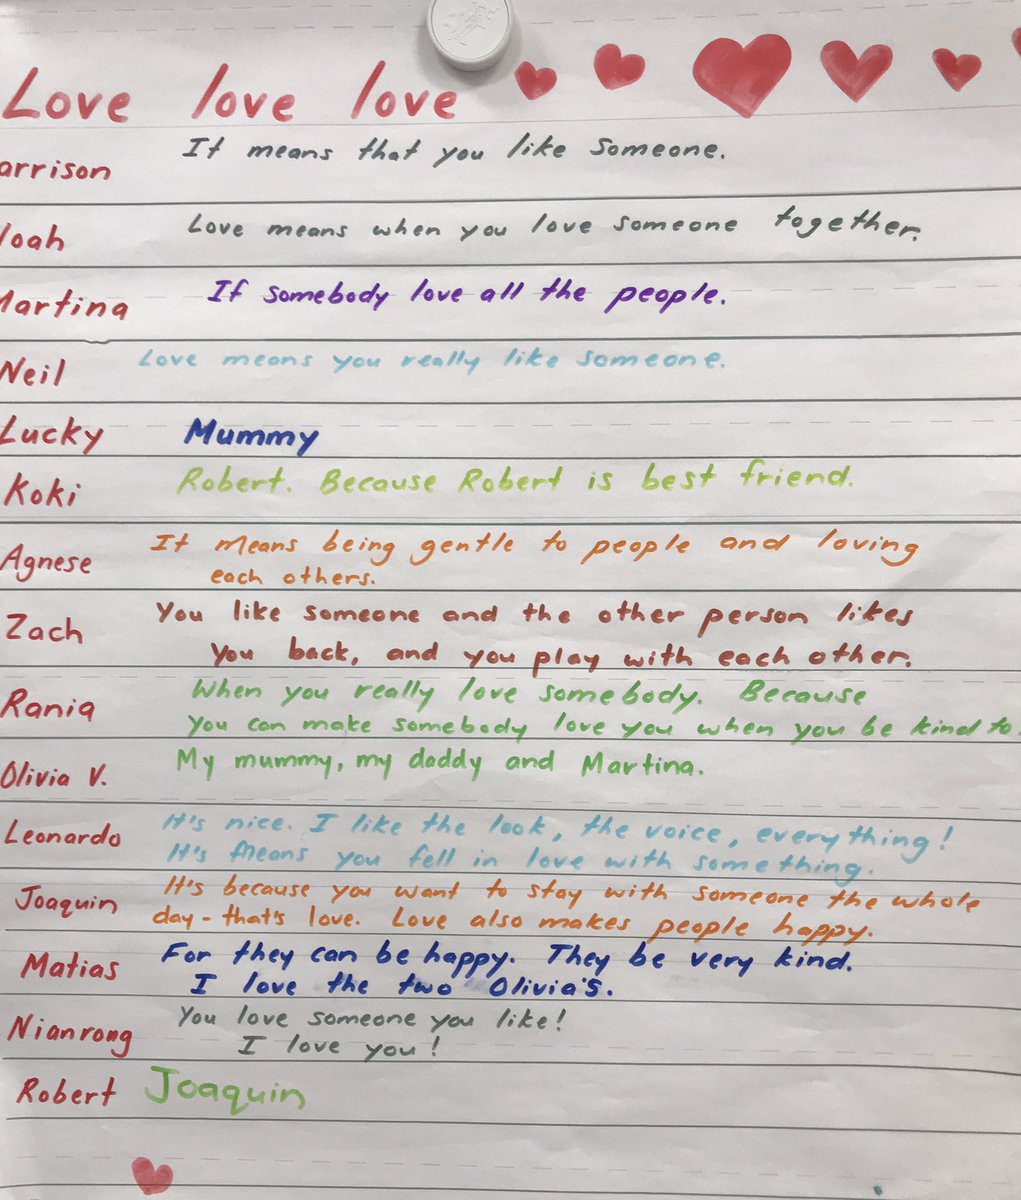 Love love love
arrison It means that you like someone.
loah Love means when you love someone together.
Martina If somebody love all the people.
Neil Love means you really like someone.
Lucky Mummy
Koki Robert. Because Robert is best friend.
Agnese It means being gentle to people and loving
each others.
Zach You like someone and the other person likes
you back, and you play with each other.
Rania When you really love somebody. Because
you can make somebody love you when you be kind to.
Olivia V. My mummy, my daddy and Martina.
Leonardo It's nice. I like the look, the voice, everything!
It's means you fell in love with something.
Joaquin It's because you want to stay with someone the whole
day - that's love. Love also makes people happy.
Matias For they can be happy. They be very kind.
I love the two Olivia's.
Nianrong You love someone you like!
I love you!
Robert Joaquin